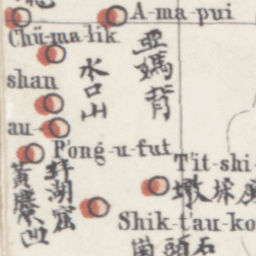 A-ma-pui
亞媽背
Chü-ma-lik
水口山
shan
au-
P'ong-u-fut
黃麖凹
蚌湖窟
T'it-shi-
Shik-t'au-ko
石頭崗